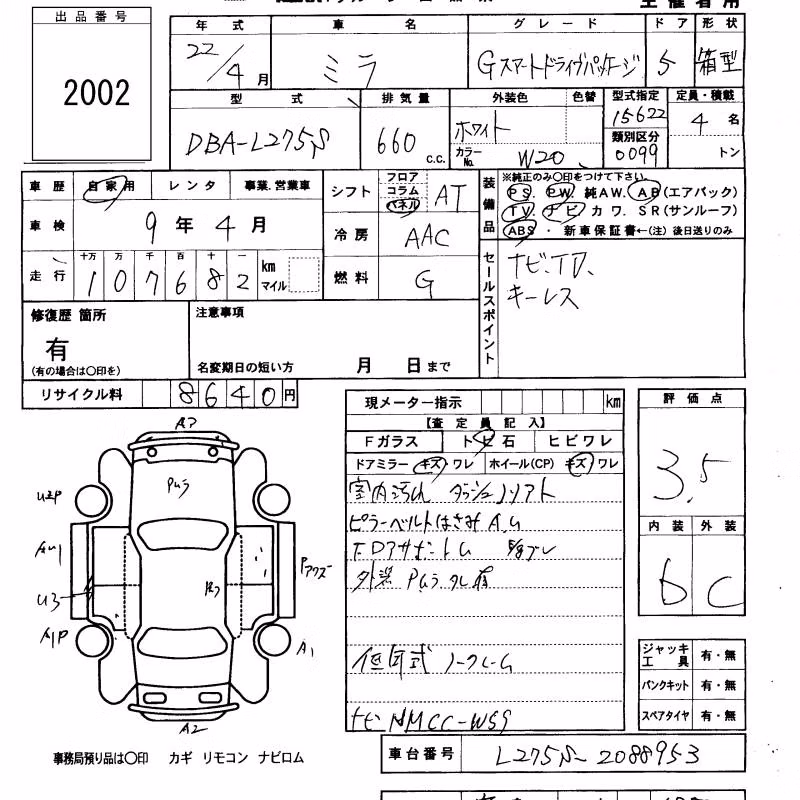 出品番号
2002
年式 車名 グレード ドア 形状
22/4月 ミラ Gスマートドライブパッケージ 5 箱型
型式 排気量 外装色 色替 型式指定 定員・積載
DBA-L275S 660 c.c. ホワイト カラーNo. W20 15622 類別区分 0099 4名 トン
車歴 自家用 レンタ 事業.営業車
車検 9年4月
走行 十万 万 千 百 十 一 km マイル
1 0 7 6 8 2
シフト フロア コラム パネル AT
冷房 AAC
燃料 G
装備品 ※純正のみ○印をつけて下さい。
PS. PW. 純AW. AB(エアバック)
TV. ナビ カワ. SR(サンルーフ)
ABS ・ 新車保証書←(注) 後日送りのみ
セールスポイント
ナビ、TV、
キーレス
修復歴 箇所
有
(有の場合は○印を)
注意事項
名変期日の短い方 月 日まで
リサイクル料 8640円
現メーター指示 km
【査定員記入】
Fガラス トビ石 ヒビワレ
ドアミラー キズ・ワレ ホイール(CP) キズ・ワレ
室内汚れ
ピラーベルトはさみ A.U
外装
低年式 ノークレーム
ナビ NMCC-W59
評価点
3.5
内装 外装
D C
ジャッキ工具 有・無
パンクキット 有・無
スペアタイヤ 有・無
U2P
U3
A1P
A1
A2
車台番号 L275S-2088953
事務局預り品は○印 カギ リモコン ナビロム